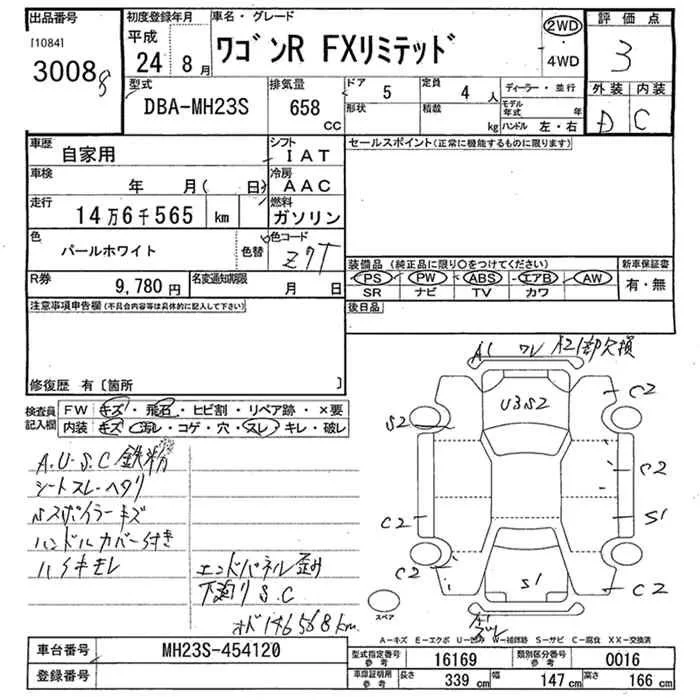 出品番号
[1084]
3008
初度登録年月
平成
24 年 8 月
車名・グレード
ワゴンR FXリミテッド
2WD
4WD
評価点
3
外装 内装
D C
型式
DBA-MH23S
排気量
658
CC
ドア
5
形状
定員
4 人
積載
kg
ディーラー・並行
モデル年式 年
ハンドル 左・右
車歴
自家用
シフト
IAT
車検
年 月( 日)
冷房
AAC
走行
14万6千565 km
燃料
ガソリン
色
パールホワイト
色替
色コード
Z7T
R券
9,780 円
名変通知期限
月 日
セールスポイント(正常に機能するものに限ります)
装備品(純正品に限り○をつけてください)
PS PW ABS エアB AW
SR ナビ TV カワ
新車保証書
有・無
後日品
注意事項申告欄(不具合内容等は具体的に記入して下さい)
修復歴 有〔箇所 〕
検査員記入欄
FW キズ・飛石・ヒビ割・リペア跡・×要
内装 キズ・汚レ・コゲ・穴・スレ・キレ・破レ
A.U.S.C 鉄粉
シートスレ・ヘタリ
スポイラーキズ
ハンドルカバー付き
ハイキモレ
エンドパネル歪み
下廻りS.C
オド146568km
A1 ワレ A21部欠損
U3S2
S2
C2
C2
S1
C2
C2
C2
S1
スペア
A－キズ E－エクボ U－凹み W－補修跡 S－サビ C－腐食 XX－交換済
車台番号
MH23S-454120
登録番号
型式指定番号
参考
16169
類別区分番号
参考
0016
車庫証明用
参考
長さ
339 cm
幅
147 cm
高さ
166 cm